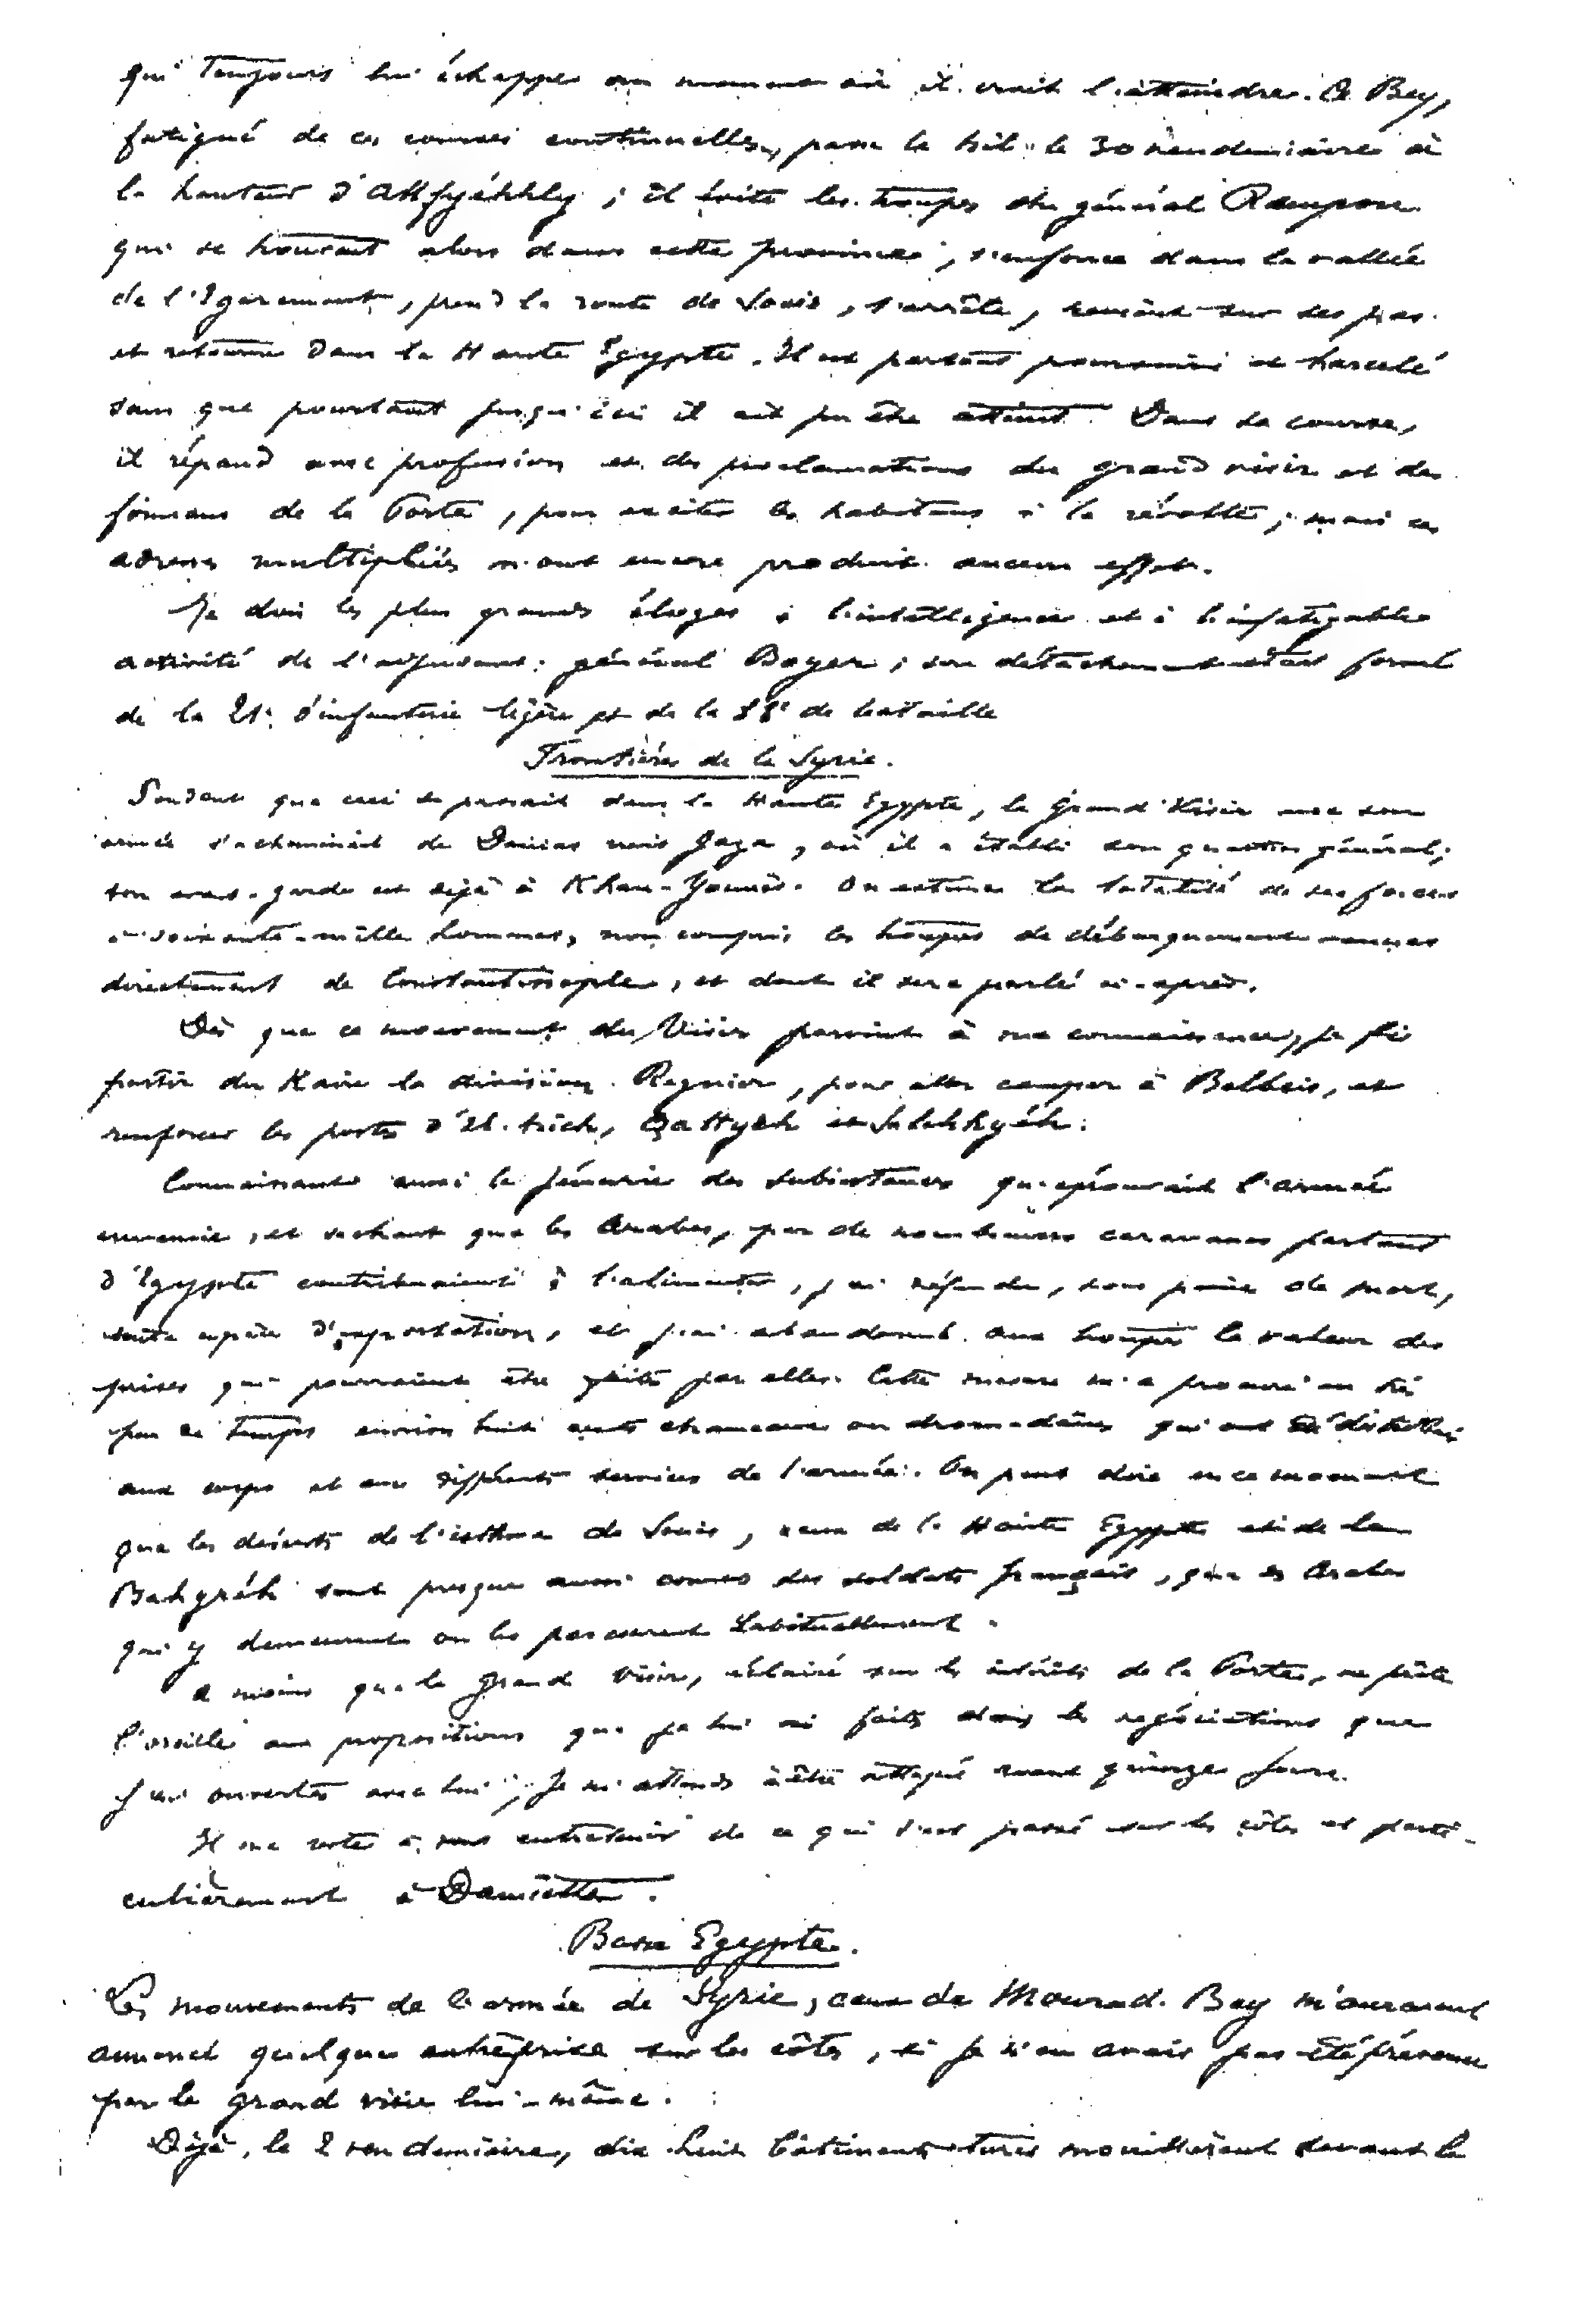 qui toujours lui échappe au moment où il croit l'atteindre. Ce Bey,
fatigué de ces courses continuelles, passe le Nil le 30 vendémiaire à
la hauteur d'Attfyéhhly ; il évite les troupes du général Rampon
qui se trouvait alors dans cette province, s'enfonce dans la vallée
de l'Egarement, prend la route de Souis, s'arrête, revient sur ses pas
et retourne dans la Haute Egypte. Il est partout poursuivi et harcelé
sans que pourtant jusqu'ici il ait pu être atteint. Dans sa course,
il répand avec profusion et des proclamations du grand visir et des
firmans de la Porte, pour exciter les habitans à la révolte ; mais ces
adresses multipliées n'ont encore produit aucun effet.
Je dois les plus grands éloges à l'intelligence et à l'infatigable
activité de l'adjudant général Boyer ; son détachement était formé
de la 21e d'infanterie légère et de la 88e de bataille
Frontières de la Syrie.
Pendant que ceci se passait dans la Haute Egypte, le Grand Visir avec son
armée s'acheminait de Damas vers Gaza, où il a établi son quartier général ;
son avant-garde est déjà à Khan-Younès. On estime la totalité de ses forces
à soixante-mille hommes, non compris les troupes de débarquement venues
directement de Constantinople, et dont il sera parlé ci-après.
Dès que ce mouvement du Visir parvint à ma connaissance, je fis
partir du Kaire la division Regnier, pour aller camper à Belbeis, et
renforcer les postes d'El-Arich, Qattyéh et Salehhyéh.
Connaissant aussi la pénurie des subsistances qu'éprouvait l'armée
ennemie, et sachant que les Arabes, par de nombreuses caravanes partant
d'Egypte contribuaient à l'alimenter, j'ai défendu, sous peine de mort,
toute espèce d'exportation, et j'ai abandonné aux troupes la valeur des
prises qui pourraient être faites par elles. Cette mesure m'a procuré en très
peu de temps environ huit cents chameaux ou dromadaires qui ont été distribués
aux corps et aux différents services de l'armée. On peut dire en ce moment
que les déserts de l'isthme de Souis, ceux de la Haute Egypte et de la
Bahyréh sont presque aussi connus des soldats français, que des Arabes
qui y demeurent ou les parcourent habituellement.
A moins que le grand Visir, éclairé sur les intérêts de la Porte, ne prête
l'oreille aux propositions que je lui ai faites dans les négociations que
j'ai ouvertes avec lui ; je m'attends à être attaqué avant quinze jours.
Il me reste à vous entretenir de ce qui s'est passé sur les côtes et parti-
culièrement à Damiette.
Basse Egypte.
Les mouvements de l'armée de Syrie, ceux de Mourad-Bey m'auraient
annoncé quelque entreprise sur les côtes, si je n'en avais pas été prévenu
par le grand visir lui-même.
Déjà, le 2 vendémiaire, dix-huit bâtiments turcs mouillèrent devant la